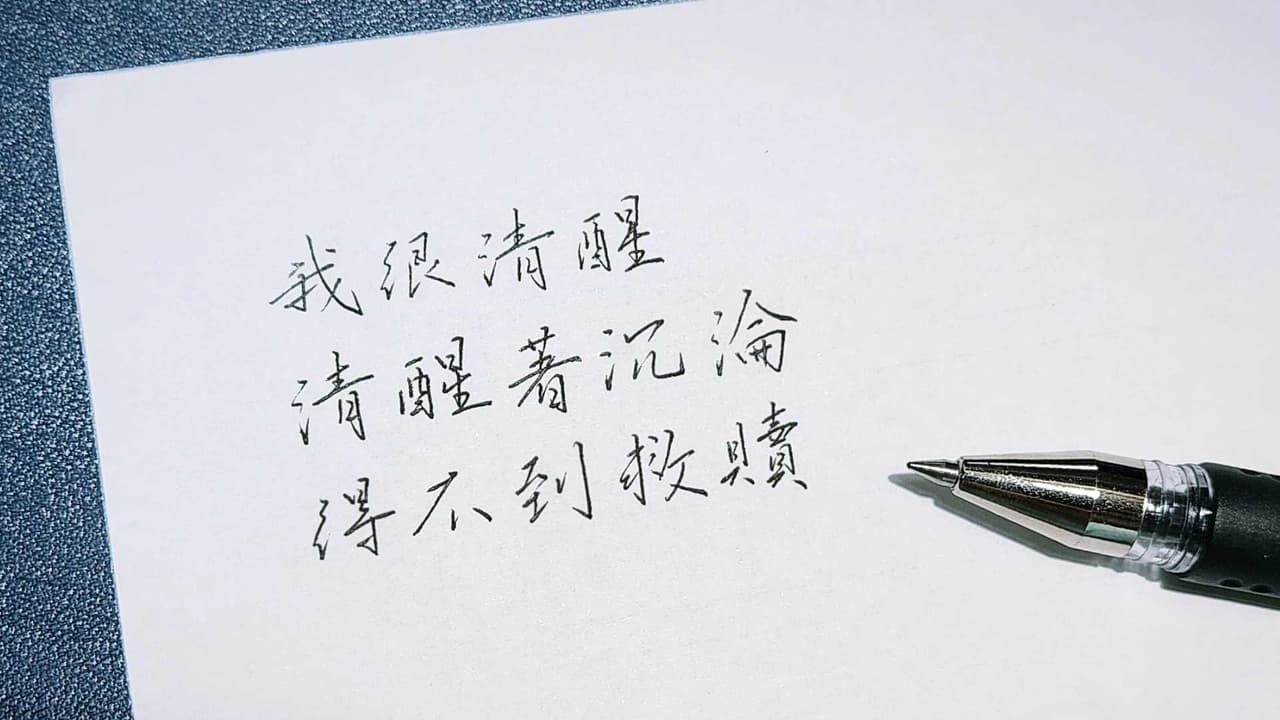 我很清醒
清醒著沉淪
得不到救贖